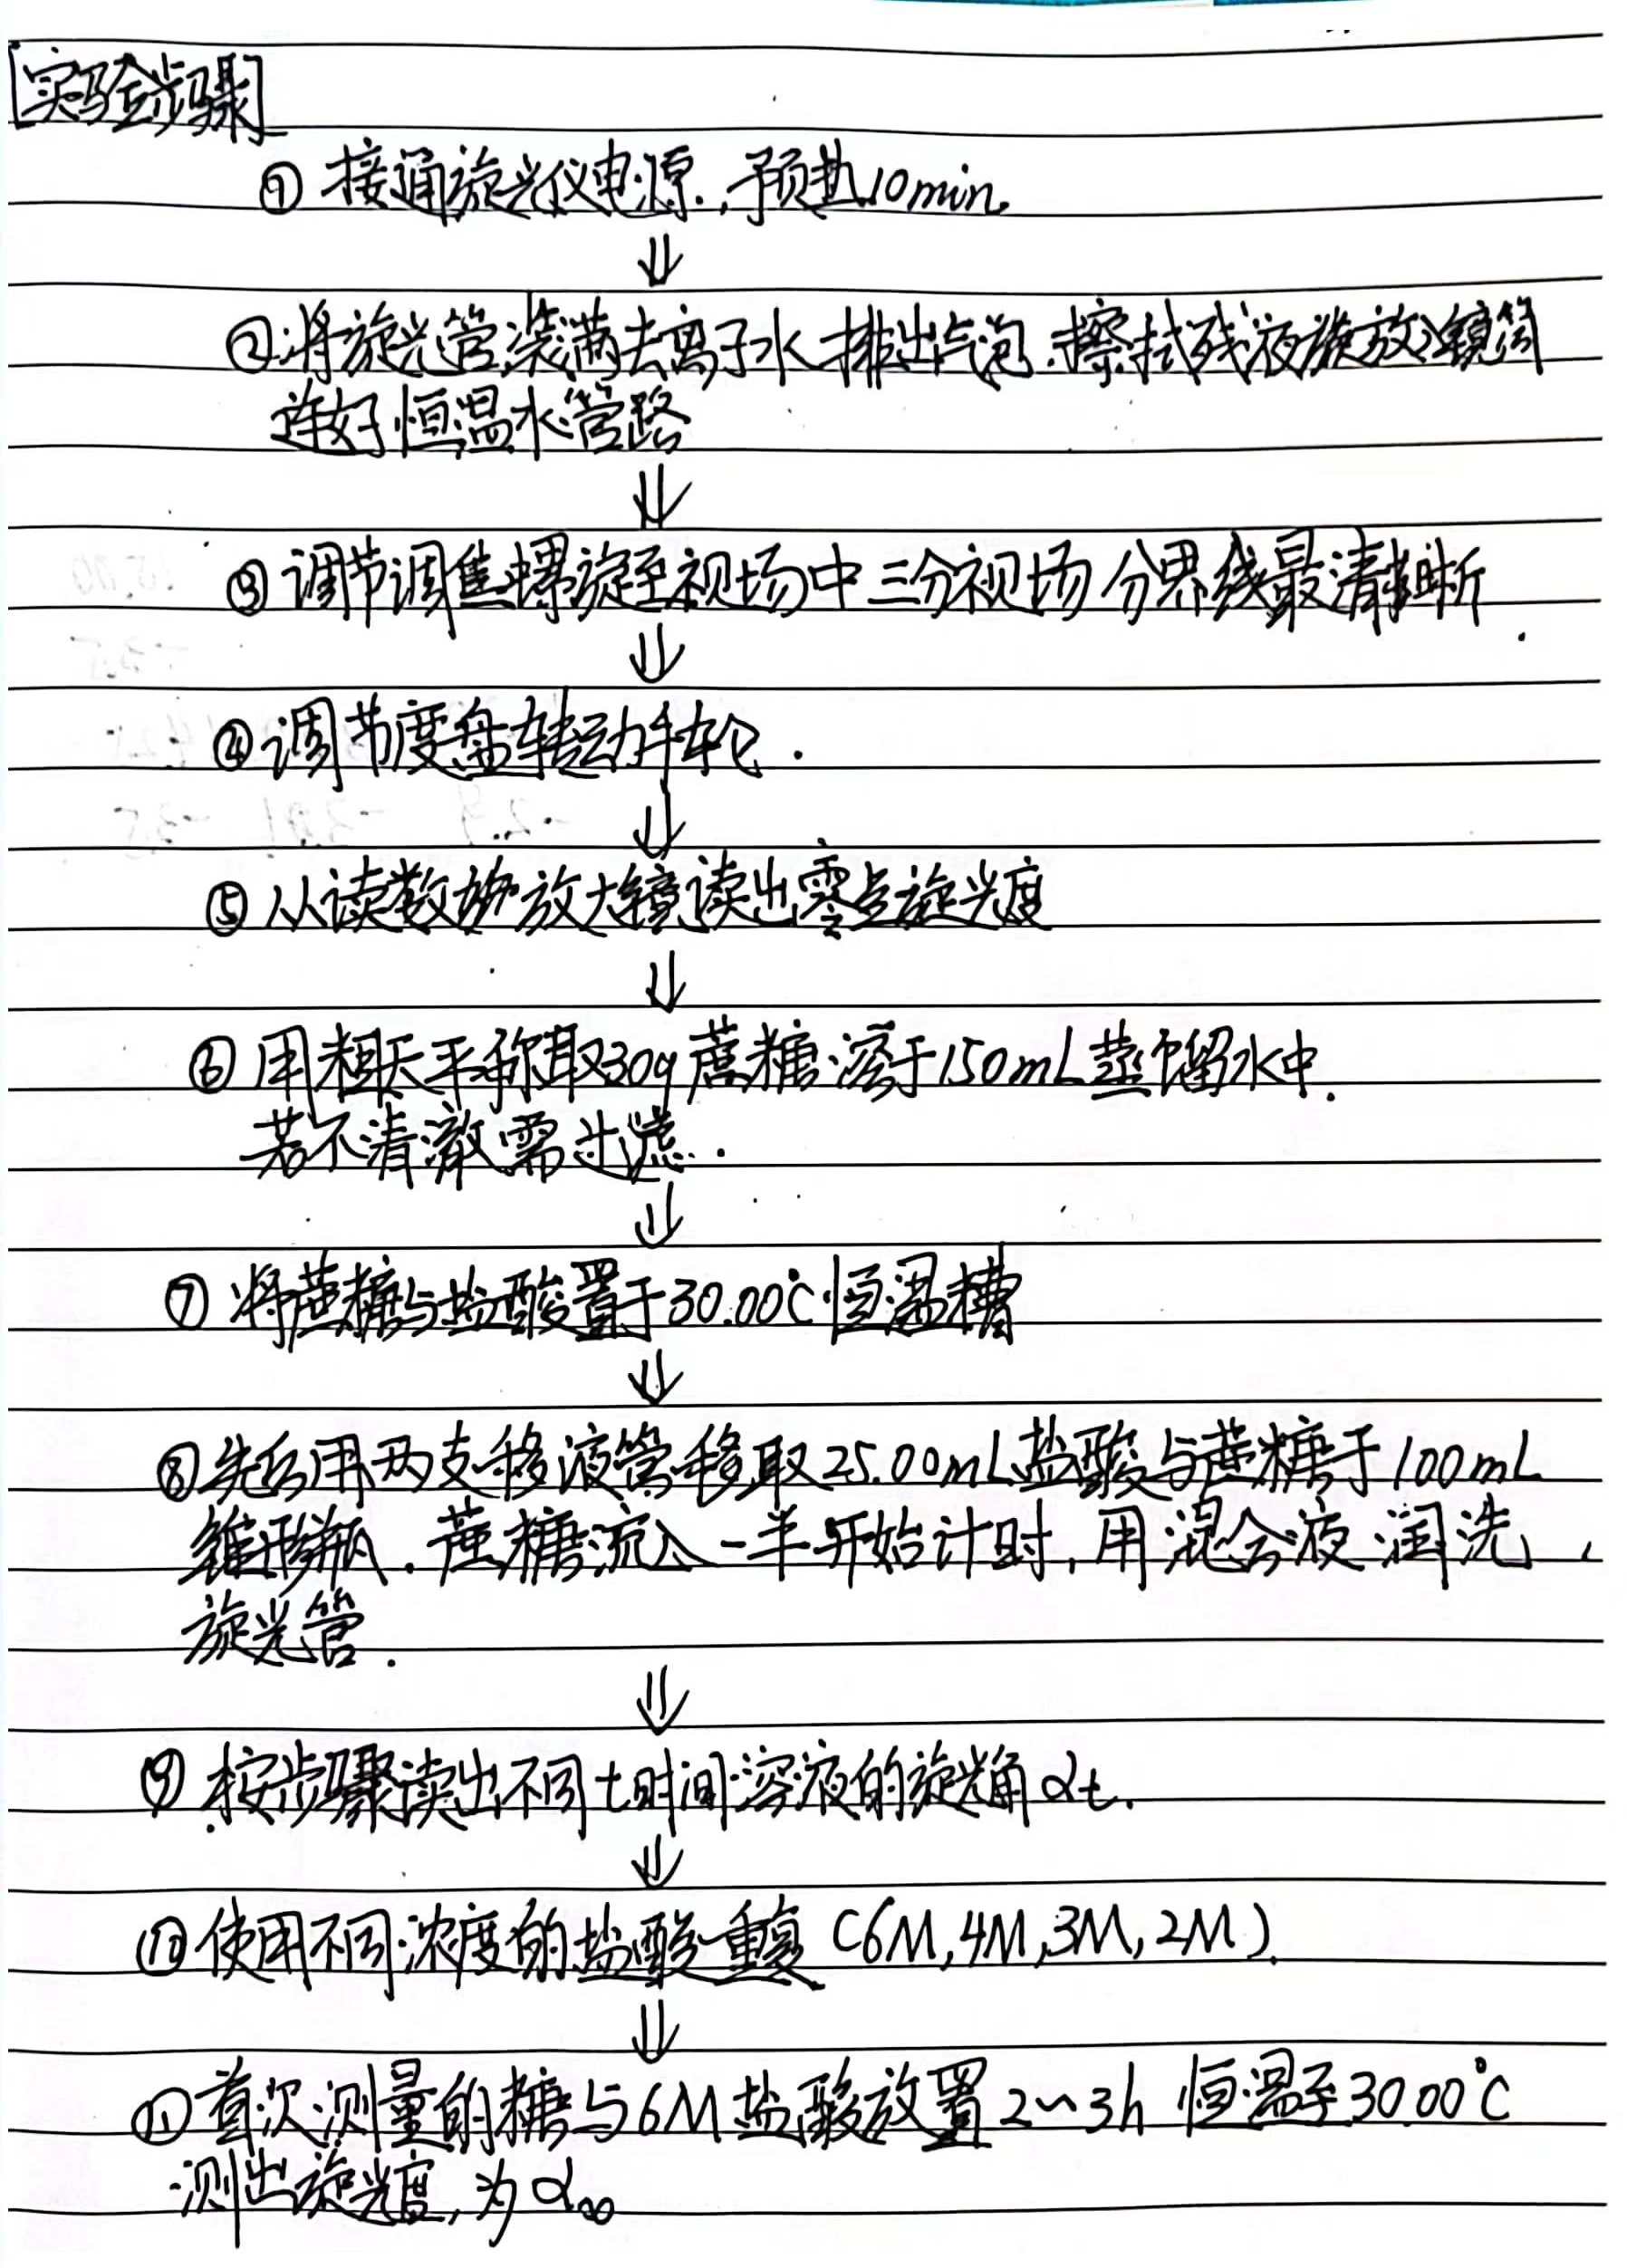 [实验步骤]
① 接通旋光仪电源，预热10min.
⇓
②将旋光管装满去离子水 排出气泡.擦拭残液旋放入镜筒
连好恒温水管路
⇓
③ 调节调焦螺旋至视场中三分视场分界线最清晰.
⇓
④调节度盘转动手轮.
⇓
⑤ 从读数放大镜读出零点旋光度
⇓
⑥ 用粗天平称取30g蔗糖溶于150mL蒸馏水中.
若不清澈需过滤.
⇓
⑦ 将蔗糖与盐酸置于30.00℃恒温槽
⇓
⑧先后用两支移液管移取25.00mL盐酸与蔗糖于100mL
锥形瓶.蔗糖流入一半开始计时,用混合液润洗
旋光管.
⇓
⑨ 按步骤读出不同t时间溶液的旋光角αt.
⇓
⑩使用不同浓度的盐酸重复 (6M,4M,3M,2M).
⇓
⑪首次测量的糖与6M盐酸放置2~3h 恒温至30.00℃
测出旋光度,为α∞